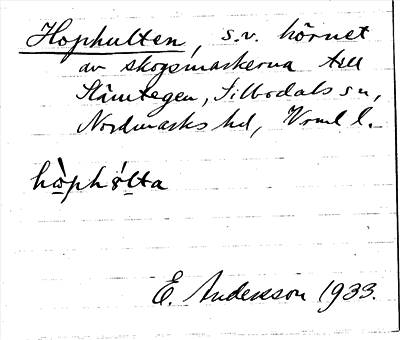 Hophulten, s.v. hörnet
av skogsmarkerna till
Slämtegen, Silbodals sn,
Nordmarks hd, Vrml l.
hòphúlta
E. Andersson 1933.